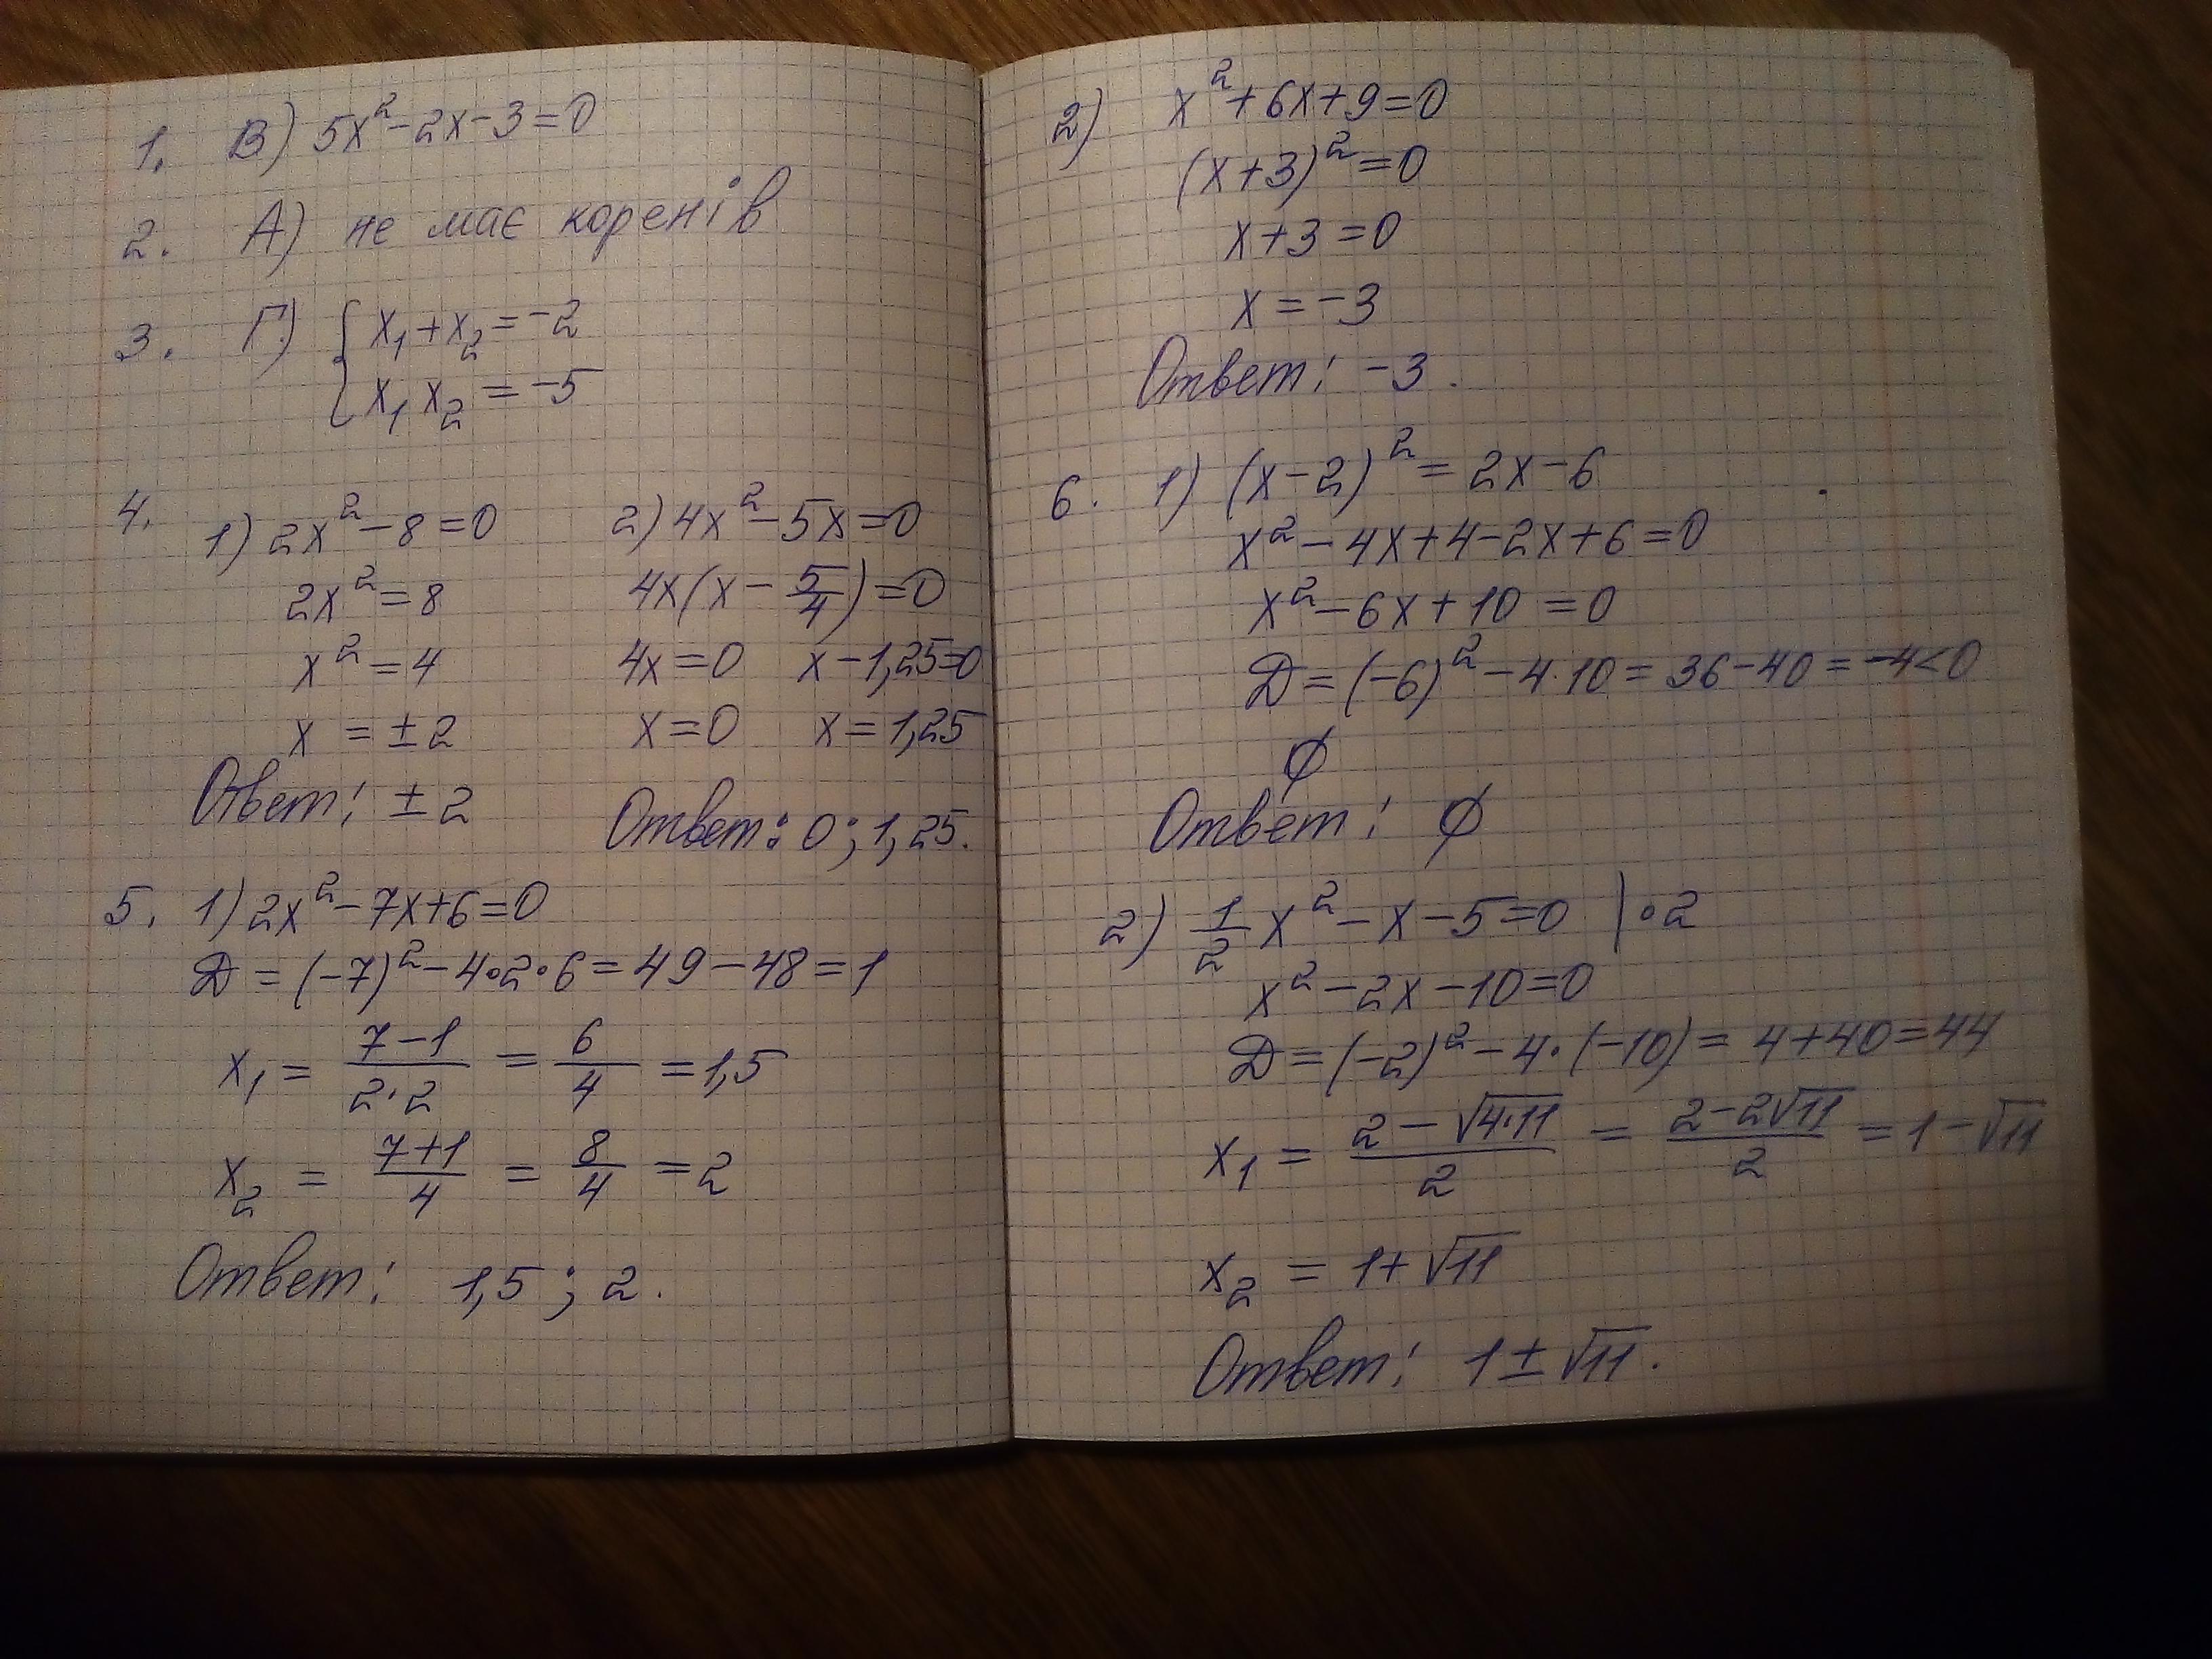 1. В) 5x²-2x-3=0
2. А) не має коренів
3. Г) { x₁+x₂=-2
x₁x₂=-5
4. 1) 2x²-8=0
2x²=8
x²=4
x=±2
Ответ: ±2
2) 4x²-5x=0
4x(x-5/4)=0
4x=0 x-1,25=0
x=0 x=1,25
Ответ: 0; 1,25.
5. 1) 2x²-7x+6=0
D=(-7)²-4•2•6=49-48=1
x₁=(7-1)/(2·2)=6/4=1,5
x₂=(7+1)/4=8/4=2
Ответ: 1,5; 2.
2) x²+6x+9=0
(x+3)²=0
x+3=0
x=-3
Ответ: -3.
6. 1) (x-2)²=2x-6
x²-4x+4-2x+6=0
x²-6x+10=0
D=(-6)²-4·10=36-40=-4<0
∅
Ответ: ∅
2) 1/2x²-x-5=0 |•2
x²-2x-10=0
D=(-2)²-4·(-10)=4+40=44
x₁=(2-√(4·11))/2=(2-2√11)/2=1-√11
x₂=1+√11
Ответ: 1±√11.